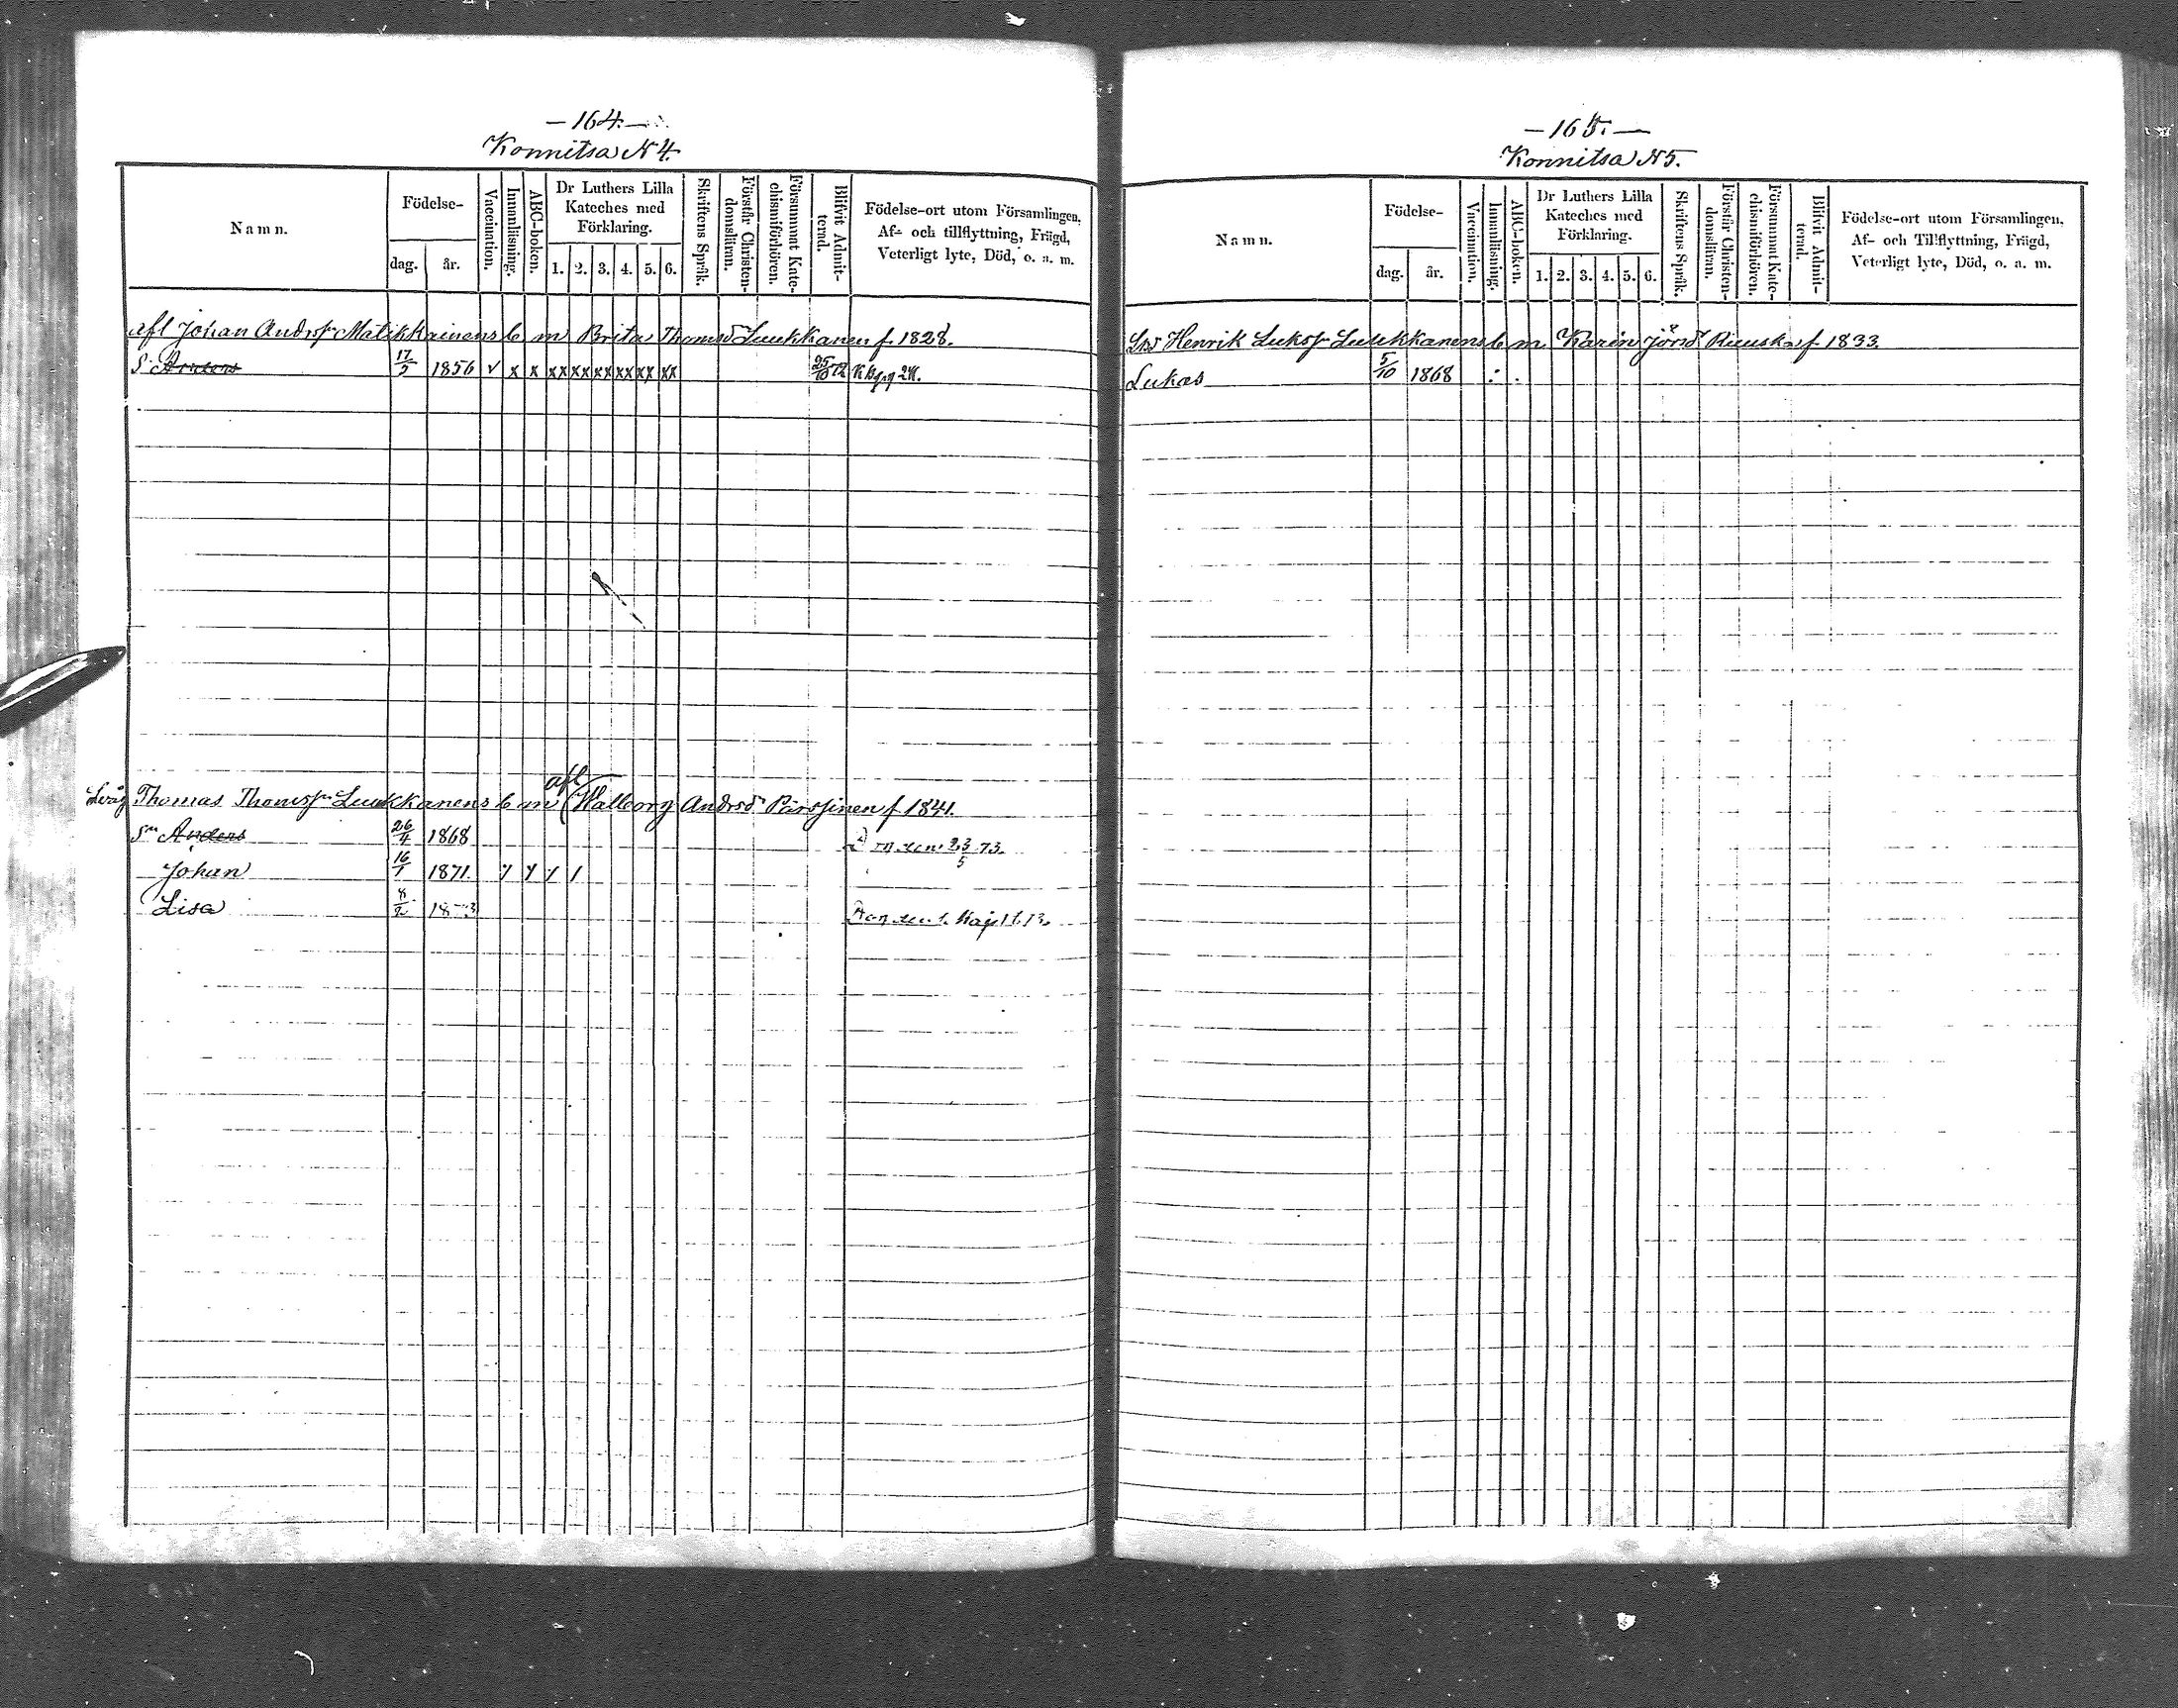 — 164. —
Konnitsa N 4.
Namn.
Födelse-
dag.
år.
Vaccination.
Innanläsning.
ABC-boken.
Dr Luthers Lilla
Kateches med
Förklaring.
1. 2. 3. 4. 5. 6.
Skriftens Språk.
Förstår Christen-
domsläran.
Försummat Kate-
chismiförhören.
Blifvit Admit-
terad.
Födelse-ort utom Församlingen,
Af- och tillflyttning, Frägd,
Veterligt lyte, Död, o. a. m.
afl Johan Andrsn Matikkainens b m Brita Thomsd Luukkanen f. 1828.
Sn Anders 17/5 1856 v x x xx xx xx xx xx xx 25/10 72
afl
Thomas Thomsn Luukkanens b m (Walborg Andrsd Pärssinen f 1841.
Sn Anders 26/4 1868 23/5 73.
Johan 16/1 1871
Lisa 8/2 1873
— 165. —
Konnitsa N 5.
Namn.
Födelse-
dag.
år.
Vaccination.
Innanläsning.
ABC-boken.
Dr Luthers Lilla
Kateches med
Förklaring.
1. 2. 3. 4. 5. 6.
Skriftens Språk.
Förstår Christen-
domsläran.
Försummat Kate-
chismiförhören.
Blifvit Admit-
terad.
Födelse-ort utom Församlingen,
Af- och Tillflyttning, Frägd,
Veterligt lyte, Död, o. a. m.
Henrik Luksn Luukkanens b m Karin Jörsd f 1833.
Lukas 5/10 1868